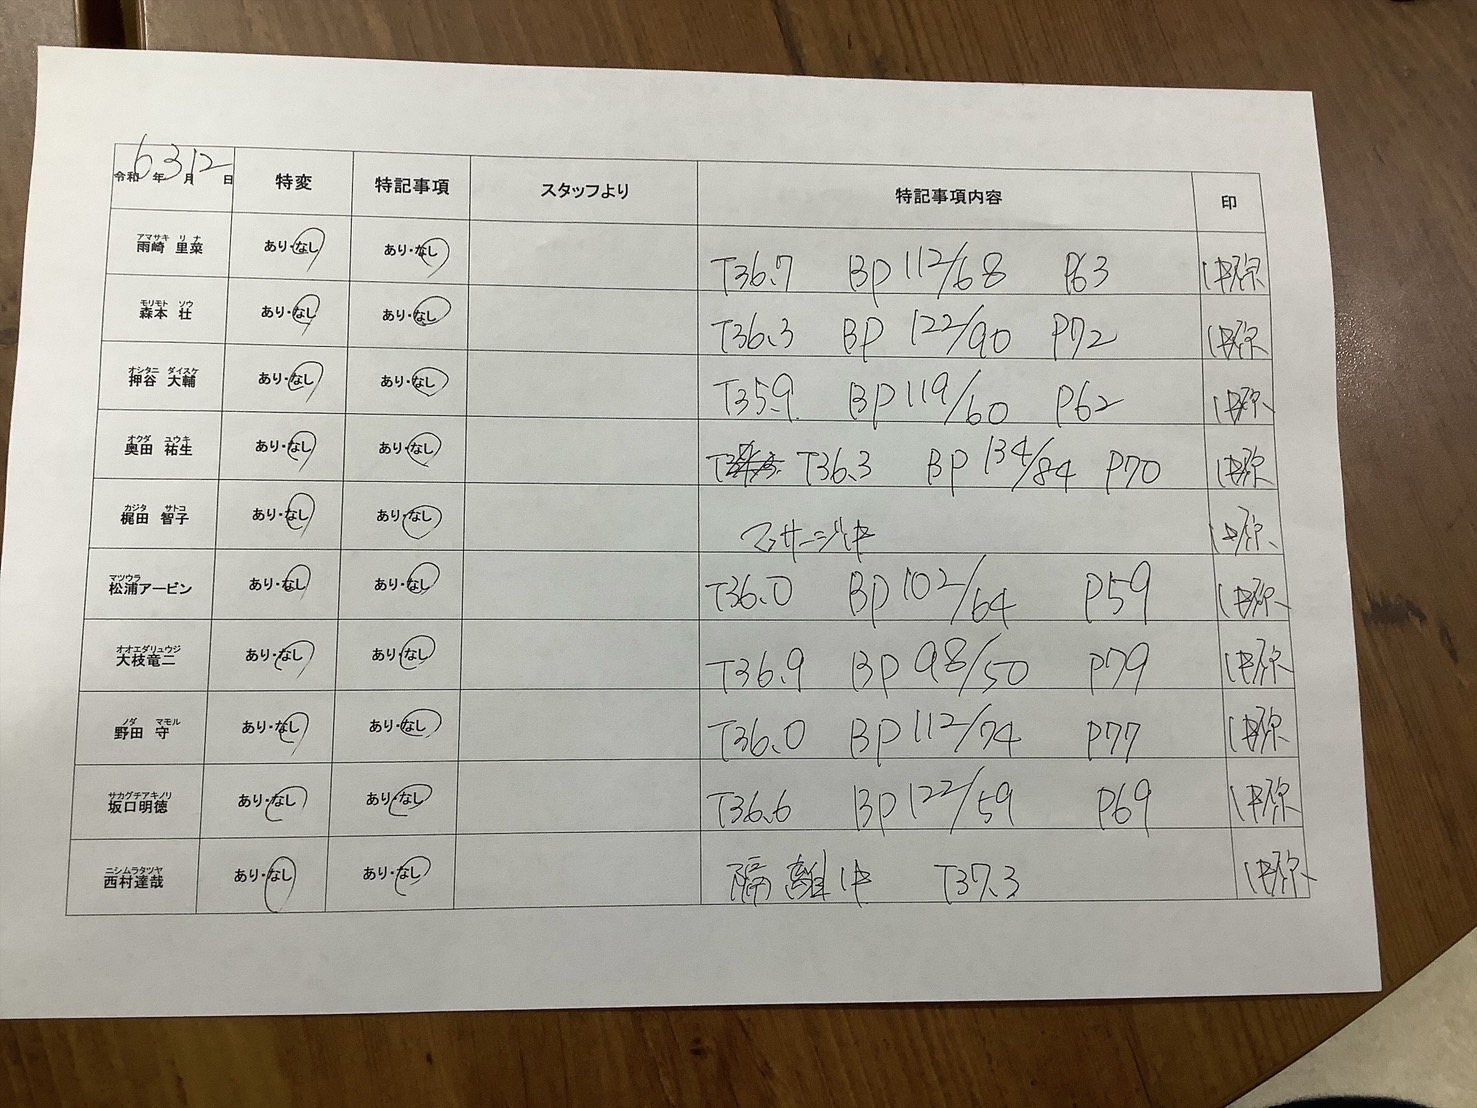 令和 6 年 3 月 12 日 特変 特記事項 スタッフより 特記事項内容 印
アマサキ リナ
雨崎 里菜 あり・なし あり・なし T36.7 BP 112/68 P63 中原
モリモト ソウ
森本 壮 あり・なし あり・なし T36.3 BP 122/90 P72 中原
オシタニ ダイスケ
押谷 大輔 あり・なし あり・なし T35.9 BP 119/60 P62 中原
オクダ ユウキ
奥田 祐生 あり・なし あり・なし T36.3 BP 134/84 P70 中原
カジタ サトコ
梶田 智子 あり・なし あり・なし マッサージ中 中原
マツウラ
松浦アービン あり・なし あり・なし T36.0 BP 102/64 P59 中原
オオエダリュウジ
大枝竜二 あり・なし あり・なし T36.9 BP 98/50 P79 中原
ノダ マモル
野田 守 あり・なし あり・なし T36.0 BP 112/74 P77 中原
サカグチアキノリ
坂口明徳 あり・なし あり・なし T36.6 BP 122/59 P69 中原
ニシムラタツヤ
西村達哉 あり・なし あり・なし 隔離中 T37.3 中原